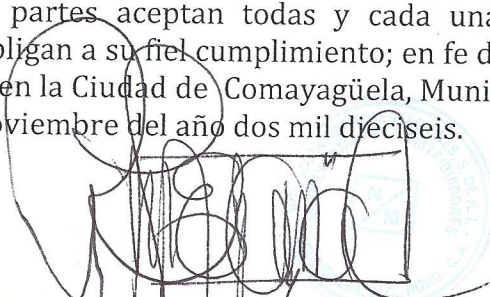 partes aceptan todas y cada una
bligan a su fiel cumplimiento; en fe d
en la Ciudad de Comayagüela, Muni
oviembre del año dos mil dieciseis.
S. DE R. L.
DISTRIBUIDORES